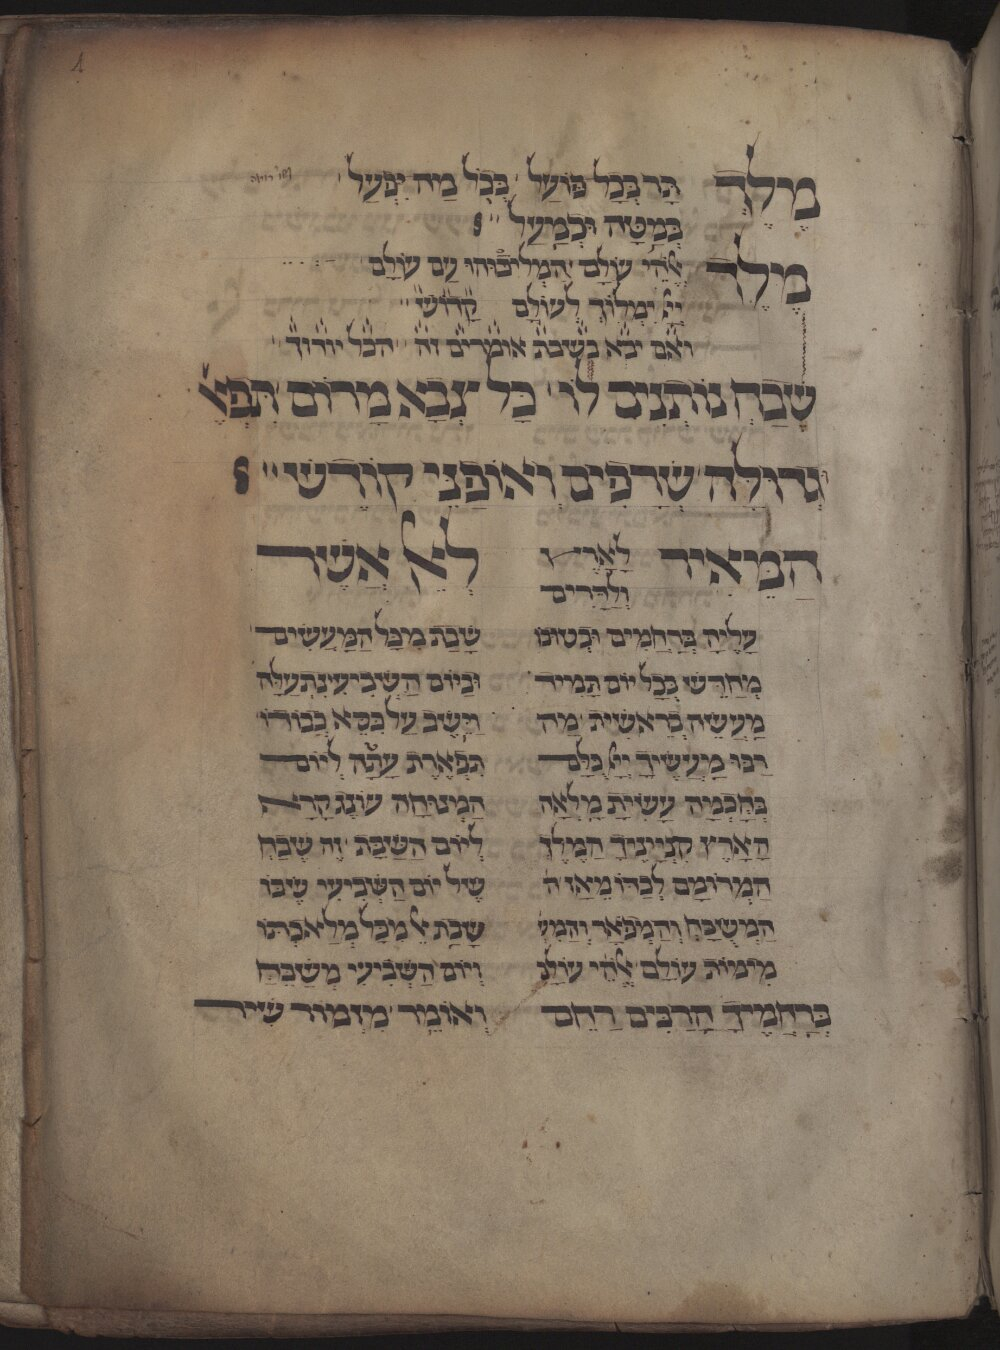 מֶלֶךְ תָּר בְּכָל פּוֹעַל בְּכָל מַה יִפְעַל
בְּמַטָּה וּבְמַעַל
מֶלֶךְ עוֹלָם עַם עוֹלָם
יְיָ יִמְלוֹךְ לְעוֹלָם קָדוֹשׁ
ואם יבא בשבת אומרים זה הכל יודוך
שֶׁבַח נוֹתְנִים לוֹ כָּל צְבָא מָרוֹם תִּפְאֶ
וּגְדוּלָּה שְׂרָפִים וְאוֹפַנֵּי קוֹדֶשׁ
הַמֵּאִיר לָאָרֶץ
וְלַדָּרִים
עָלֶיהָ בְּרַחֲמִים וּבְטוּבוֹ
מְחַדֵּשׁ בְּכָל יוֹם תָּמִיד
מַעֲשֵׂה בְרֵאשִׁית מָה
רַבּוּ מַעֲשֶׂיךָ יְיָ כֻּלָּם
בְּחָכְמָה עָשִׂיתָ מָלְאָה
הָאָרֶץ קִנְיָינֶיךָ הַמֶּלֶךְ
הַמְרוֹמָם לְבַדּוֹ מֵאָז ה
הַמְשֻׁבָּח וְהַמְפֹאָר וְהַמִּתְ
מִימוֹת עוֹלָם אֱלֹהֵי עוֹלָם
בְּרַחֲמֶיךָ הָרַבִּים רַחֵם
לָאֵל אֲשֶׁר
שָׁבַת מִכָּל הַמַּעֲשִׂים
וּבַיּוֹם הַשְּׁבִיעִי נִתְעַלָּה
וְיָשַׁב עַל כִּסֵּא כְבוֹדוֹ
תִּפְאֶרֶת עָטָה לְיוֹם
הַמְּנוּחָה עוֹנֶג קָרָא
לְיוֹם הַשַּׁבָּת זֶה שֶׁבַח
שֶׁל יוֹם הַשְּׁבִיעִי שֶׁבּוֹ
שָׁבַת אֵל מִכָּל מְלַאכְתּוֹ
וְיוֹם הַשְּׁבִיעִי מְשַׁבֵּחַ
וְאוֹמֵר מִזְמוֹר שִׁיר